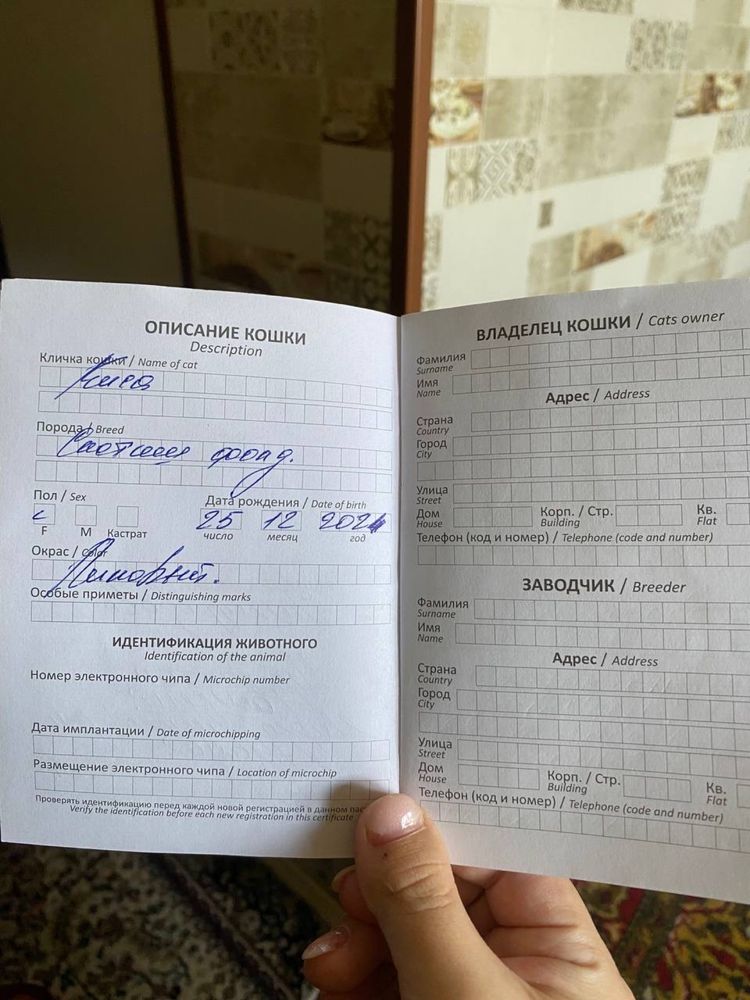 ОПИСАНИЕ КОШКИ
Description
Кличка кошки / Name of cat
Киса
Порода / Breed
фолд.
Пол / Sex
F M Кастрат
Дата рождения / Date of birth
25 12 2024
число месяц год
Окрас / Color
Особые приметы / Distinguishing marks
ИДЕНТИФИКАЦИЯ ЖИВОТНОГО
Identification of the animal
Номер электронного чипа / Microchip number
Дата имплантации / Date of microchipping
Размещение электронного чипа / Location of microchip
Проверять идентификацию перед каждой новой регистрацией в данном
Verify the identification before each new registration in this certificate
ВЛАДЕЛЕЦ КОШКИ / Cats owner
Фамилия
Surname
Имя
Name
Адрес / Address
Страна
Country
Город
City
Улица
Street
Дом Корп. / Стр. Кв.
House Building Flat
Телефон (код и номер) / Telephone (code and number)
ЗАВОДЧИК / Breeder
Фамилия
Surname
Имя
Name
Адрес / Address
Страна
Country
Город
City
Улица
Street
Дом Корп. / Стр. Кв.
House Building Flat
Телефон (код и номер) / Telephone (code and number)